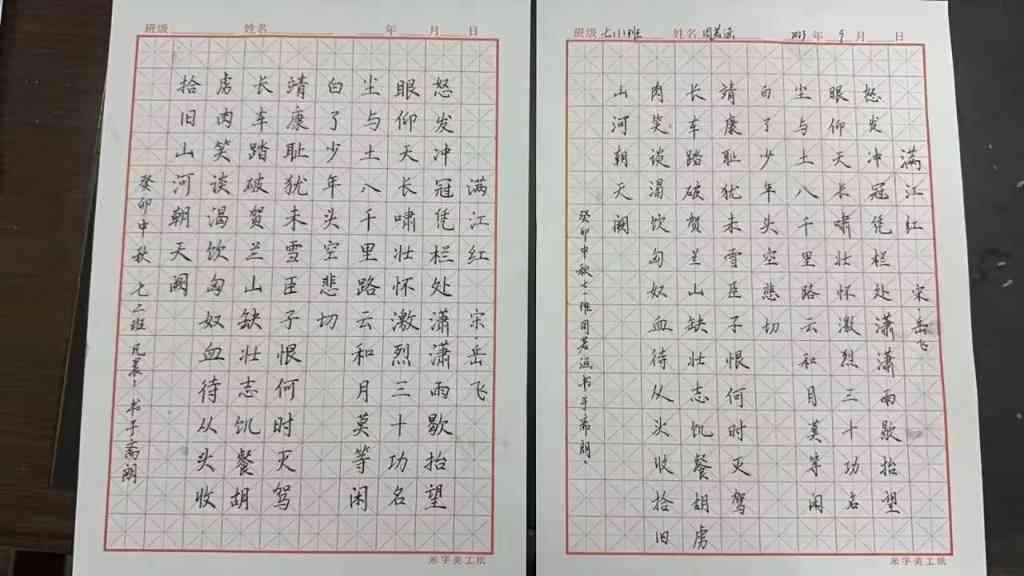 班级 姓名 年 月 日
满江红 宋·岳飞
怒发冲冠凭栏处潇潇雨歇抬望
眼仰天长啸壮怀激烈三十功名
尘与土八千里路云和月莫等闲
白了少年头空悲切
靖康耻犹未雪臣子恨何时灭驾
长车踏破贺兰山缺壮志饥餐胡
虏肉笑谈渴饮匈奴血待从头收
拾旧山河朝天阙
癸卯中秋 七二班 书于
米字美工纸
班级 七(1)班 姓名 年 9 月 日
满江红 宋·岳飞
怒发冲冠凭栏处潇潇雨歇抬望
眼仰天长啸壮怀激烈三十功名
尘与土八千里路云和月莫等闲
白了少年头空悲切
靖康耻犹未雪臣子恨何时灭驾
长车踏破贺兰山缺壮志饥餐胡虏
肉笑谈渴饮匈奴血待从头收拾旧
山河朝天阙
癸卯中秋七·一班周若涵书于
米字美工纸